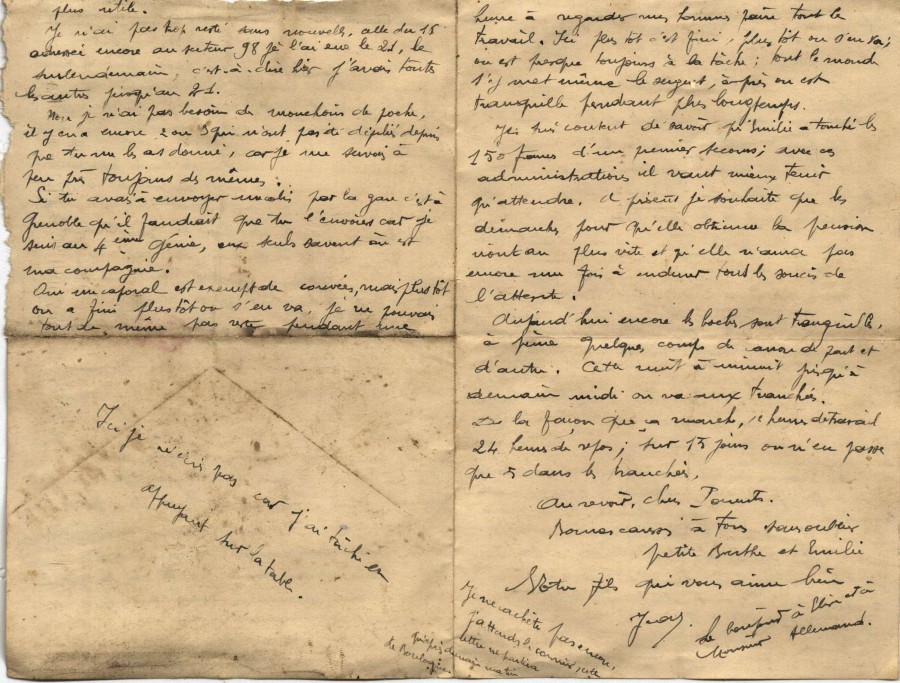 plus utile.
Je n'ai pas trop resté sans nouvelles, celle du 18
adressée encore au secteur 98 je l'ai eue le 21, le
surlendemain, c'est-à-dire hier j'avais toutes
les autres jusqu'au 21.
Non je n'ai pas besoin de mouchoirs de poche,
il y en a encore 2 ou 3 qui n'ont pas été dépliés depuis
que tu me les as donné, car je me servais à
peu près toujours des mêmes.
Si tu avais à envoyer un colis par la gare c'est à
Grenoble qu'il faudrait que tu l'envoies car je
suis au 4ème Génie, eux seuls savent où est
ma compagnie.
Oui un caporal est exempt de corvées, mais plus tôt
on a fini plus tôt on s'en va, je ne pouvais
tout de même pas rester pendant une
Ici je
n'écris pas car j'ai tâché en
appuyant sur la table.
heure à regarder mes hommes faire tout le
travail. Ici plus tôt c'est fini, plus tôt on s'en va;
on est presque toujours à la tâche; tout le monde
s'y met même le sergent, après on est
tranquille pendant plus longtemps.
Je suis content de savoir qu'Emilie a touché les
150 francs d'un premier secours; avec ces
administrations il vaut mieux tenir
qu'attendre. A présent je souhaite que les
démarches pour qu'elle obtienne la pension
iront au plus vite et qu'elle n'aura pas
encore une fois à endurer tout les soucis de
l'attente.
Aujourd'hui encore les boches sont tranquilles,
à peine quelques coups de canon de part et
d'autre. Cette nuit à minuit jusqu'à
demain midi on va aux tranchées.
De la façon que ça marche, 12 heures de travail
24 heures de repos; sur 15 jours on n'en passe
que 5 dans les tranchées.
Au revoir, chers Parents.
Bonnes caresses à tous sans oublier
petite Berthe et Emilie
Votre fils qui vous aime bien
Le bonjour à et à
Monsieur Allemand.
Je ne cachète pas encore,
j'attends le courrier, cette
lettre ne partira
demain matin
de Boulogne.